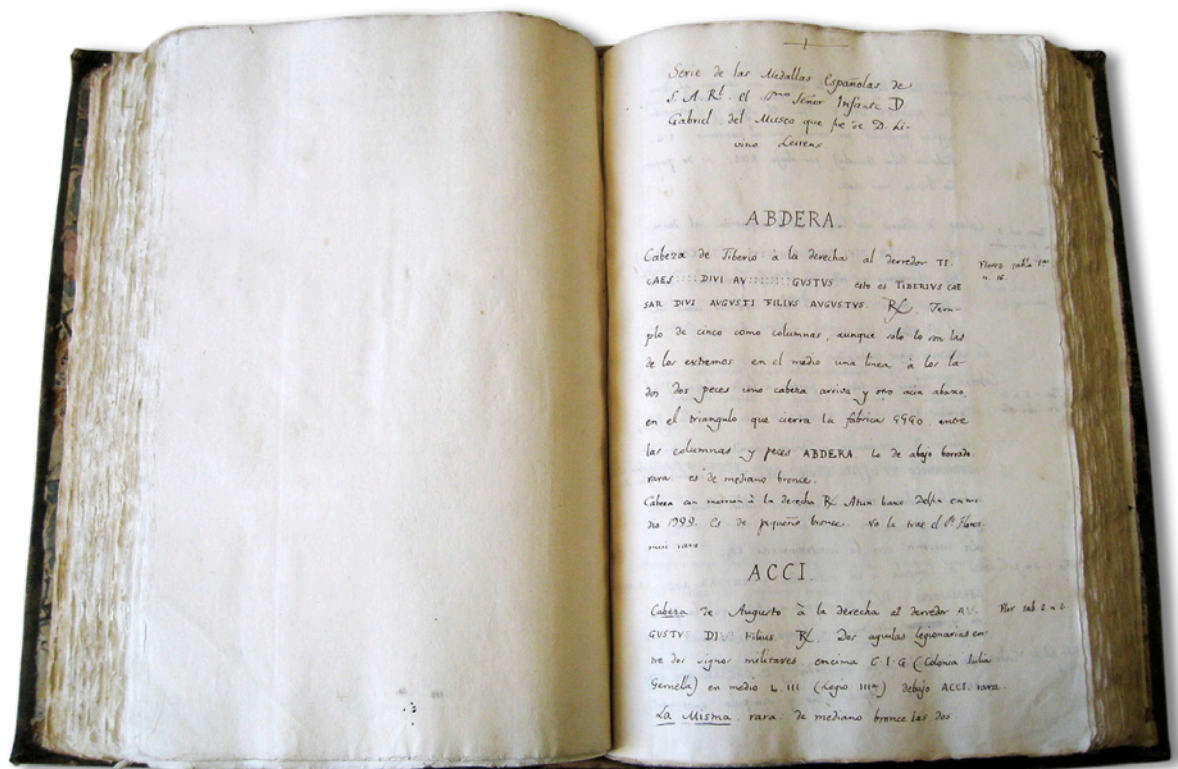 Serie de las Medallas Españolas de
S. A. Rl. el Smo Señor Infante D.
Gabriel del Museo que fue de D. Li-
vino Leirens
ABDERA.
Cabeza de Tiberio à la derecha al derredor TI.
CAES :::: DIVI AV :::::::: GVSTVS esto es TIBERIVS CAE
SAR DIVI AUGVSTI FILIVS AVGVSTVS. R/. Tem-
plo de cinco como columnas, aunque solo lo son las
de los extremos en el medio una linea à los la-
dos dos peces uno cabeza arriva y otro acia abaxo
en el triangulo que cierra la fabrica entre
las columnas y peces ABDERA. Lo de abajo borrado.
rara. es de mediano bronce.
Florez tabla 1
n. 16.
Cabeza con à la derecha R/. Atun baxo Delfin en me-
dio Es de pequeño bronce. No la trae el Pe. Florez.
mui rara
ACCI.
Cabeza de Augusto à la derecha al derredor AU-
GUSTVS DIVI Filius. R/. Dos aguilas legionarias en-
tre dos signos militares encima C. I. G (Colonia Iulia
Gemella) en medio L. III (Legio IIIa) debajo ACCI. rara.
La Misma rara: de mediano bronce las dos
Flor tab. 2 n 2